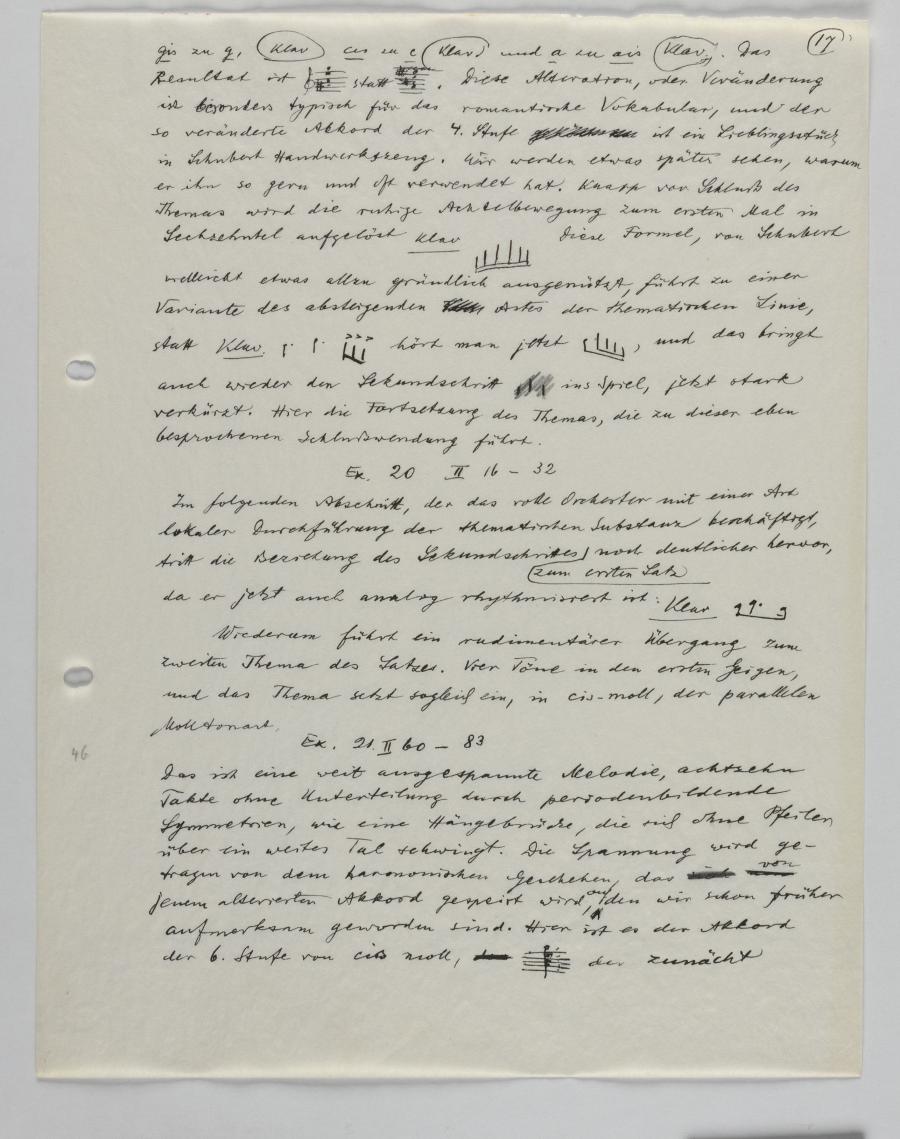 17
gis zu g, Klav cis zu c Klav und a zu ais Klav. Das
Resultat ist statt . Diese Alteration, oder Veränderung
ist besonders typisch für das romantische Vokabular, und der
so veränderte Akkord der 4. Stufe ist ein Lieblingsstück
in Schubert Handwerkszeug. Wir werden etwas später sehen, warum
er ihn so gern und oft verwendet hat. Knapp vor Schluß des
Themas wird die ruhige Achtelbewegung zum ersten Mal in
Sechzehntel aufgelöst Klav Diese Formel, von Schubert
vielleicht etwas allzu gründlich ausgenützt, führt zu einer
Variante des absteigenden Astes der thematischen Linie,
statt Klav. hört man jetzt , und das bringt
auch wieder den Sekundschritt ins Spiel, jetzt stark
verkürzt. Hier die Fortsetzung des Themas, die zu dieser eben
besprochenen Schlußwendung führt.
Ex. 20 II 16 – 32
Im folgenden Abschnitt, der das volle Orchester mit einer Art
lokaler Durchführung der thematischen Substanz beschäftigt,
tritt die Beziehung des Sekundschrittes noch deutlicher hervor,
zum ersten Satz
da er jetzt auch analog rhythmisiert ist: Klav
Wiederum führt ein rudimentärer Übergang zum
zweiten Thema des Satzes. Vier Töne in den ersten Geigen,
und das Thema setzt sogleich ein, in cis-moll, der parallelen
Molltonart.
Ex. 21. II 60 – 83
46
Das ist eine weit ausgespannte Melodie, achtzehn
Takte ohne Unterteilung durch periodenbildende
Symmetrien, wie eine Hängebrücke, die sich ohne Pfeiler
über ein weites Tal schwingt. Die Spannung wird ge-
tragen von dem harmonischen Geschehen, das von
jenem alterierten Akkord gespeist wird, auf den wir schon früher
aufmerksam geworden sind. Hier ist es der Akkord
der 6. Stufe von cis moll, der zunächt